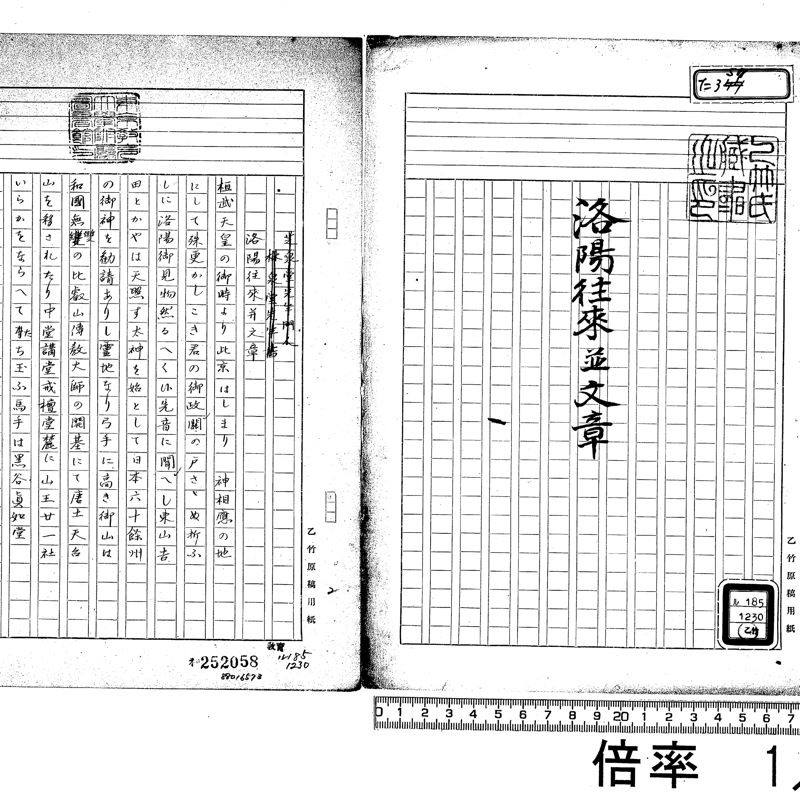 た344
乙竹氏
蔵書
之印
洛陽往來並文章
乙竹原稿用紙
ル185
1230
乙竹
洛陽往來并文章
桓武天皇の御時より此京はしまり 神相應の地
にして殊更かしこき君の御政關の戸さゝぬ折ふ
しに洛陽御見物然るへく候先音に聞へし東山吉
田とかやは天照す大神を始として日本六十餘州
の御神を勧請ありし霊地なり弓手に高き御山は
和國無雙の比叡山傳教大師の開基にて唐土天台
山を移されたり中堂講堂戒檀堂麓に山王廿一社
いらかをならへて立ち玉ふ馬手は黒谷眞如堂
乙竹原稿用紙
2
252058
教育
ル185
1230
88016573
0 1 2 3 4 5 6 7 8 9 20 1 2 3 4 5 6 7
倍率 1